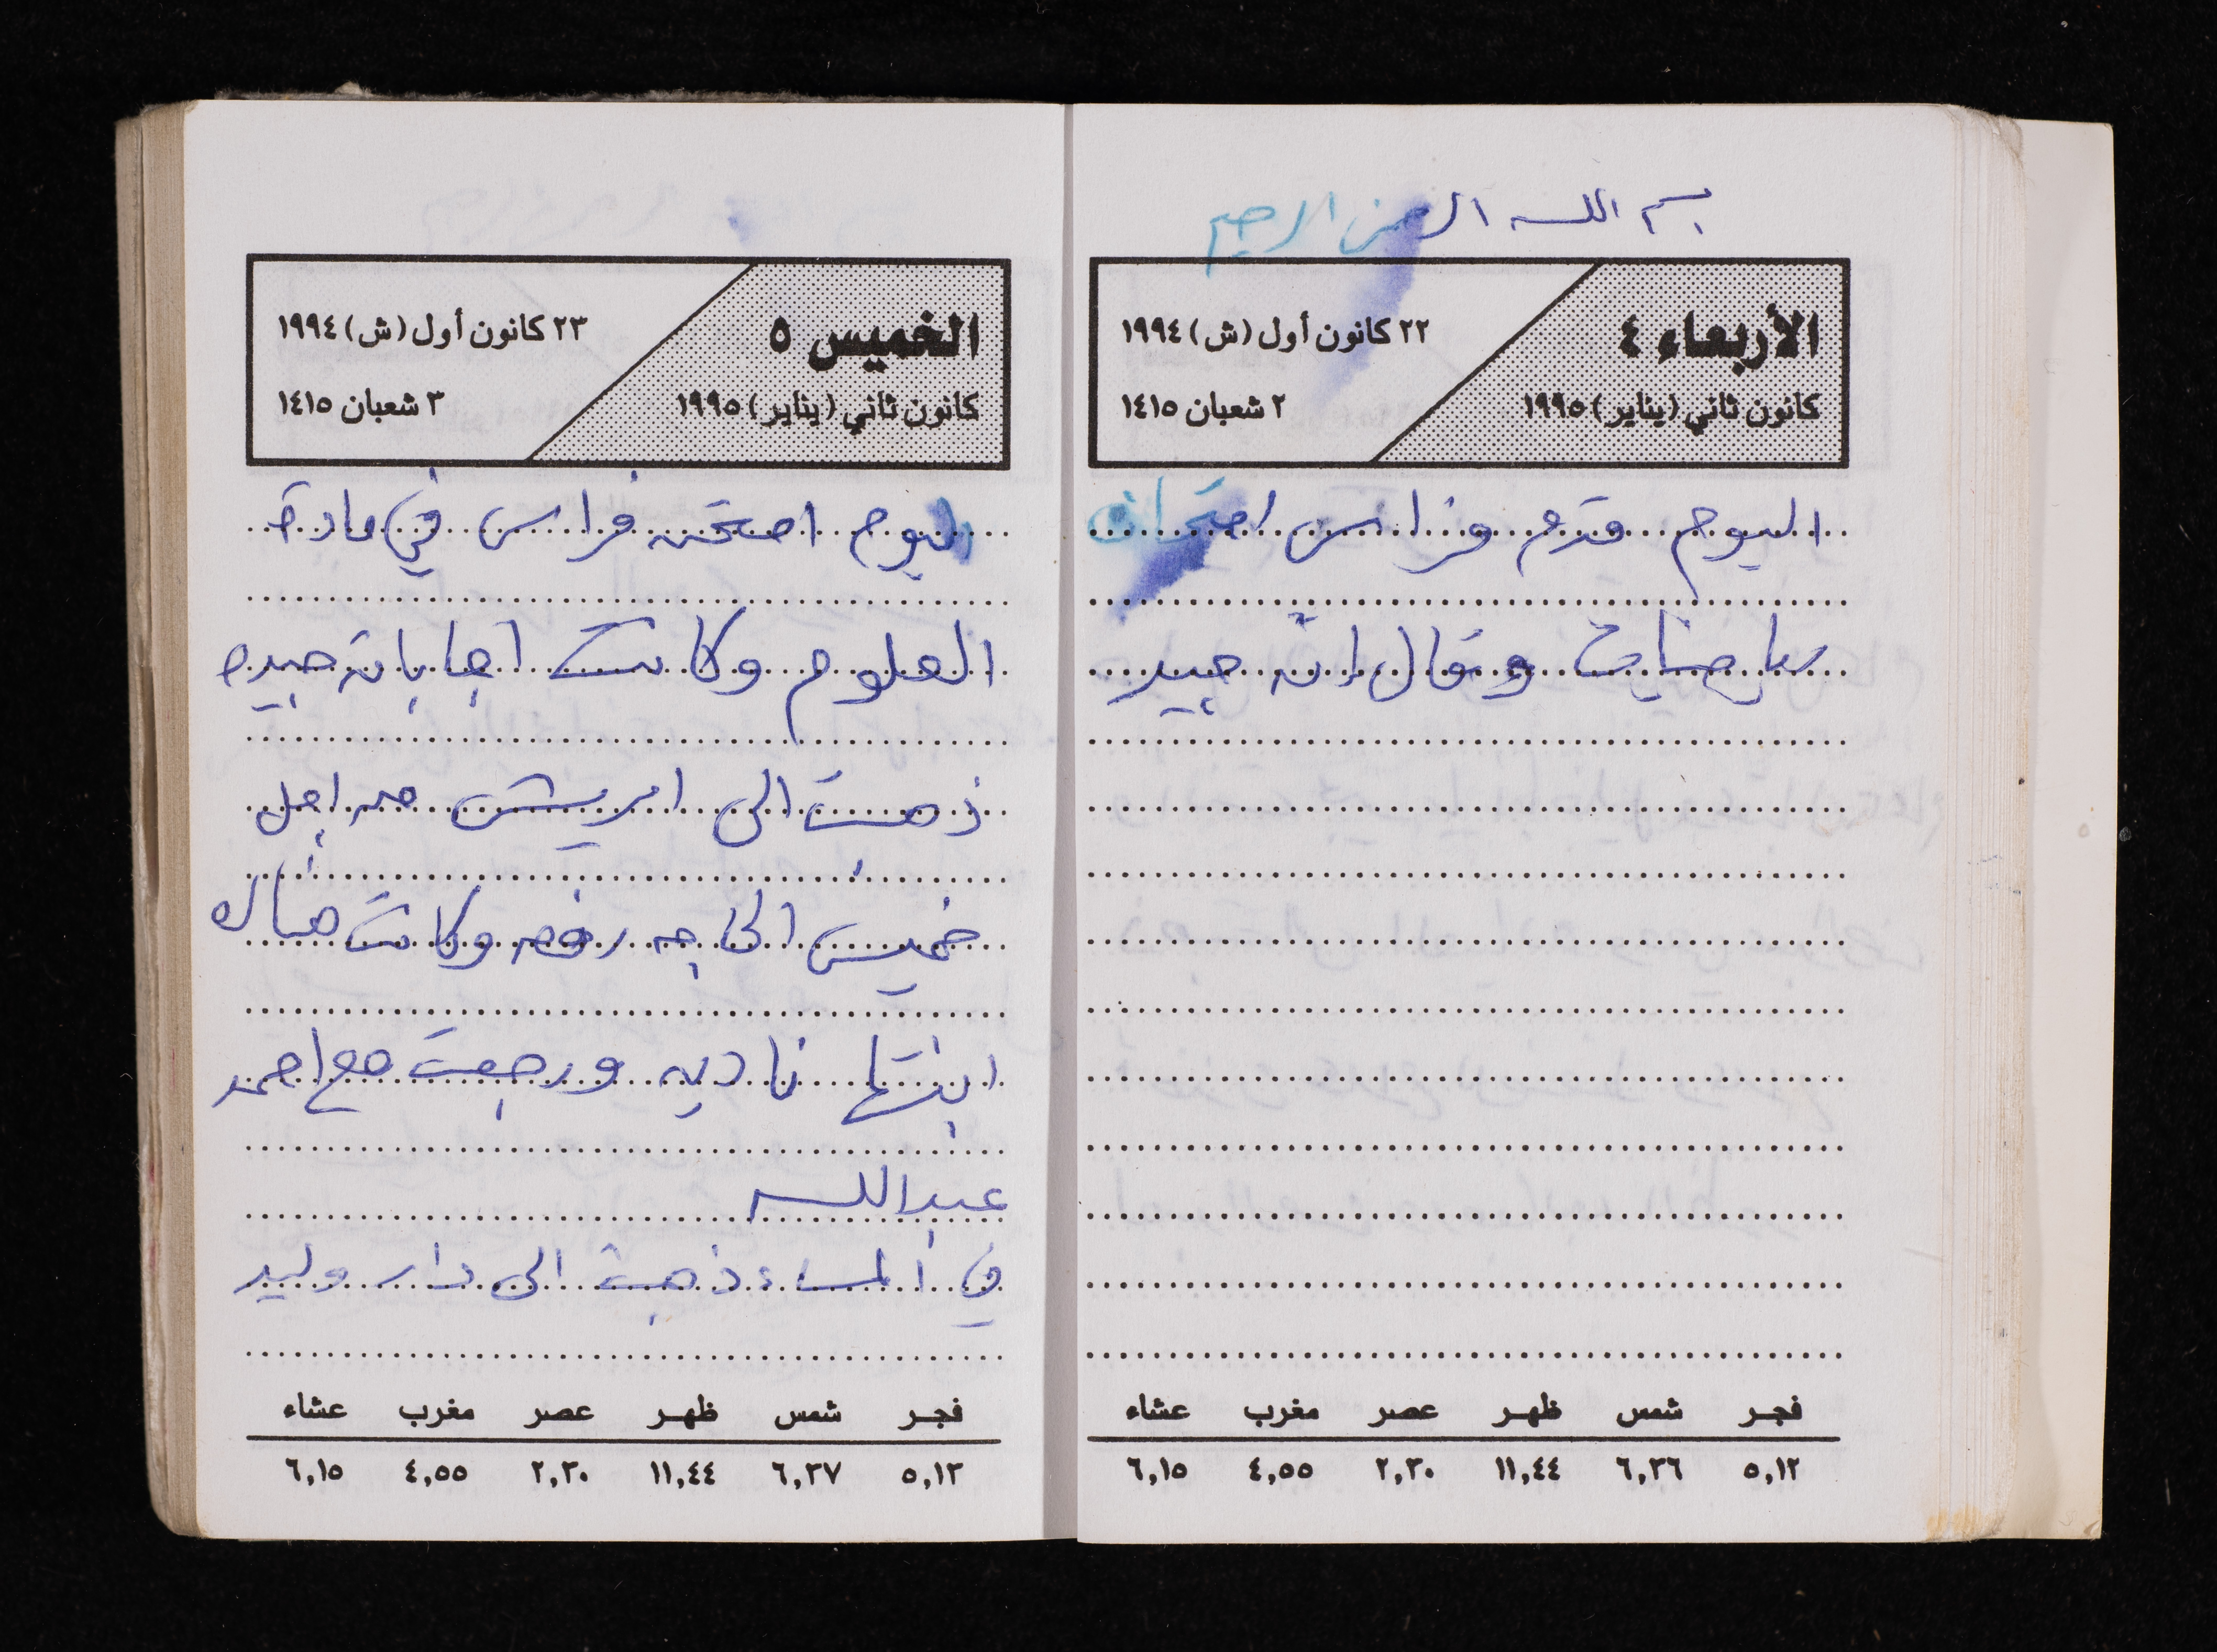 بسم الله الرحمن الرحيم
الأربعاء ٤
٢٢ كانون أول (ش) ١٩٩٤
كانون ثاني (يناير) ١٩٩٥
٢ شعبان ١٤١٥
اليوم قدم فراس امتحان
رياضيات وقال إنه جيد
فجر شمس ظهر عصر مغرب عشاء
٥,١٢ ٦,٣٦ ١١,٤٤ ٢,٣٠ ٤,٥٥ ٦,١٥
الخميس ٥
٢٣ كانون أول (ش) ١٩٩٤
كانون ثاني (يناير) ١٩٩٥
٣ شعبان ١٤١٥
اليوم امتحن فراس في مادة
العلوم وكانت اجاباته جيده
ذهبت الى ام يش من اجل
خميس الحاجه رفقه وكانت هناك
ابنتها ناديه ورجعت مع احمد
عبدالله
في المساء ذهبت الى دار وليد
فجر شمس ظهر عصر مغرب عشاء
٥,١٣ ٦,٣٧ ١١,٤٤ ٢,٣٠ ٤,٥٥ ٦,١٥